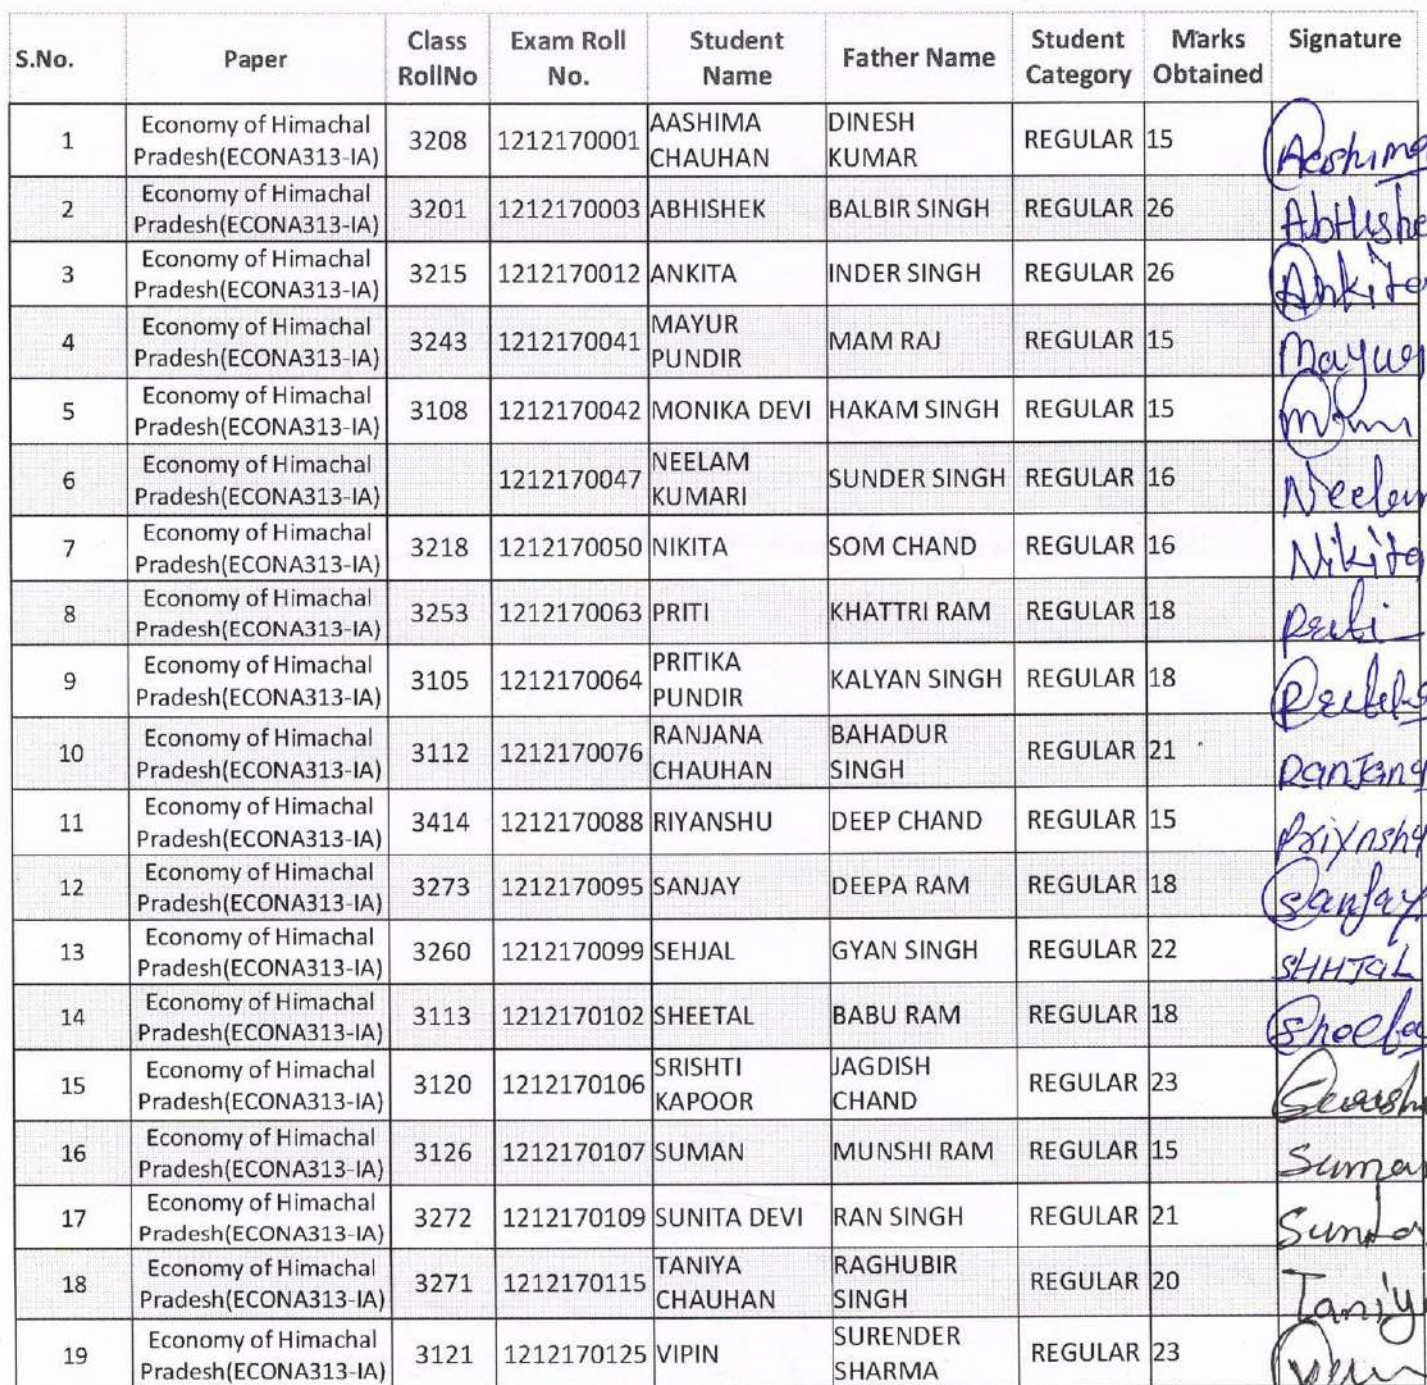 S.No. Paper Class RollNo Exam Roll No. Student Name Father Name Student Category Marks Obtained Signature
1 Economy of Himachal Pradesh(ECONA313-IA) 3208 1212170001 AASHIMA CHAUHAN DINESH KUMAR REGULAR 15 Aashima
2 Economy of Himachal Pradesh(ECONA313-IA) 3201 1212170003 ABHISHEK BALBIR SINGH REGULAR 26 AbHishe
3 Economy of Himachal Pradesh(ECONA313-IA) 3215 1212170012 ANKITA INDER SINGH REGULAR 26 Ankita
4 Economy of Himachal Pradesh(ECONA313-IA) 3243 1212170041 MAYUR PUNDIR MAM RAJ REGULAR 15 Mayur
5 Economy of Himachal Pradesh(ECONA313-IA) 3108 1212170042 MONIKA DEVI HAKAM SINGH REGULAR 15
6 Economy of Himachal Pradesh(ECONA313-IA) 1212170047 NEELAM KUMARI SUNDER SINGH REGULAR 16 Neelam
7 Economy of Himachal Pradesh(ECONA313-IA) 3218 1212170050 NIKITA SOM CHAND REGULAR 16 Nikita
8 Economy of Himachal Pradesh(ECONA313-IA) 3253 1212170063 PRITI KHATTRI RAM REGULAR 18
9 Economy of Himachal Pradesh(ECONA313-IA) 3105 1212170064 PRITIKA PUNDIR KALYAN SINGH REGULAR 18
10 Economy of Himachal Pradesh(ECONA313-IA) 3112 1212170076 RANJANA CHAUHAN BAHADUR SINGH REGULAR 21 RanJana
11 Economy of Himachal Pradesh(ECONA313-IA) 3414 1212170088 RIYANSHU DEEP CHAND REGULAR 15 PriYnshy
12 Economy of Himachal Pradesh(ECONA313-IA) 3273 1212170095 SANJAY DEEPA RAM REGULAR 18 Sanjay
13 Economy of Himachal Pradesh(ECONA313-IA) 3260 1212170099 SEHJAL GYAN SINGH REGULAR 22 SHHJaL
14 Economy of Himachal Pradesh(ECONA313-IA) 3113 1212170102 SHEETAL BABU RAM REGULAR 18 Sheeta
15 Economy of Himachal Pradesh(ECONA313-IA) 3120 1212170106 SRISHTI KAPOOR JAGDISH CHAND REGULAR 23
16 Economy of Himachal Pradesh(ECONA313-IA) 3126 1212170107 SUMAN MUNSHI RAM REGULAR 15 Suman
17 Economy of Himachal Pradesh(ECONA313-IA) 3272 1212170109 SUNITA DEVI RAN SINGH REGULAR 21 Sunita
18 Economy of Himachal Pradesh(ECONA313-IA) 3271 1212170115 TANIYA CHAUHAN RAGHUBIR SINGH REGULAR 20 Taniy
19 Economy of Himachal Pradesh(ECONA313-IA) 3121 1212170125 VIPIN SURENDER SHARMA REGULAR 23